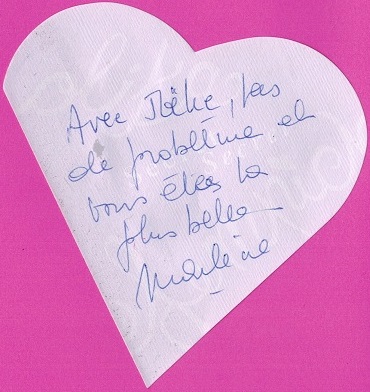 Avec Maïké, pas
de problème et
vous êtes la
plus belle
Marlène